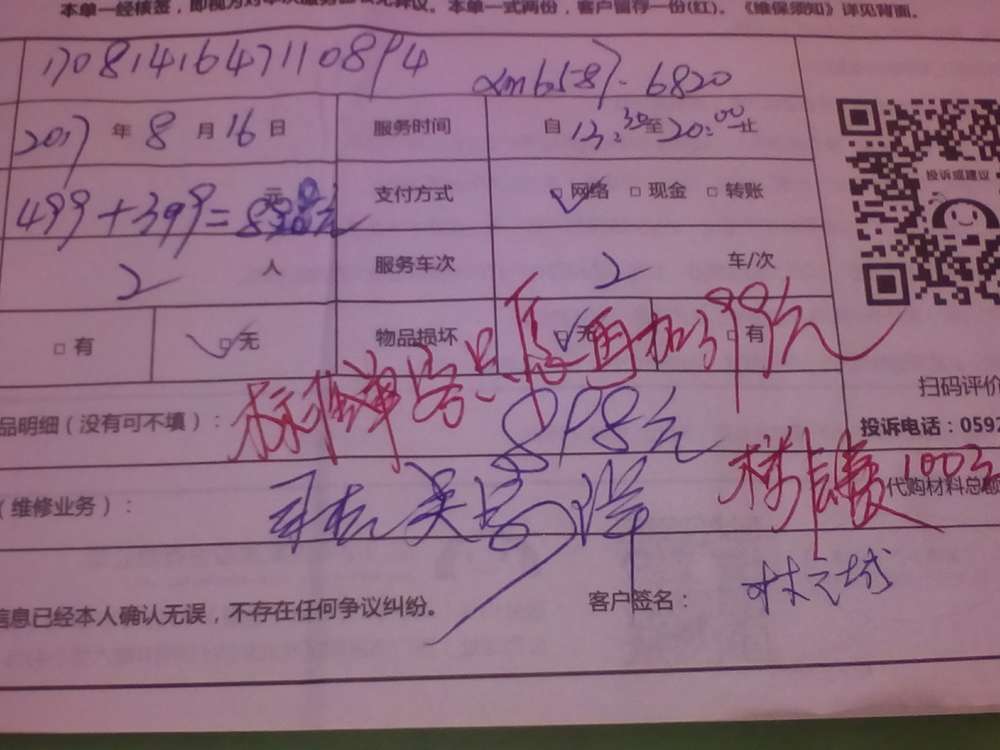 本单一经核签，即视为对本次服务
本单一式两份，客户留存一份(红)。《维保须知》详见背面。
1708141647110894
6820
2017年8月16日 服务时间 自13:30至20:00止
499+399=898元 支付方式 网络 □现金 □转账
投诉或建议
2人 服务车次 2车/次
□有 □无 物品损坏 □无 □有
再加399元
扫码评价
品明细（没有可不填）：
898元
投诉电话：0592
（维修业务）：
司机吴
100元
代购材料总额
信息已经本人确认无误，不存在任何争议纠纷。 客户签名：